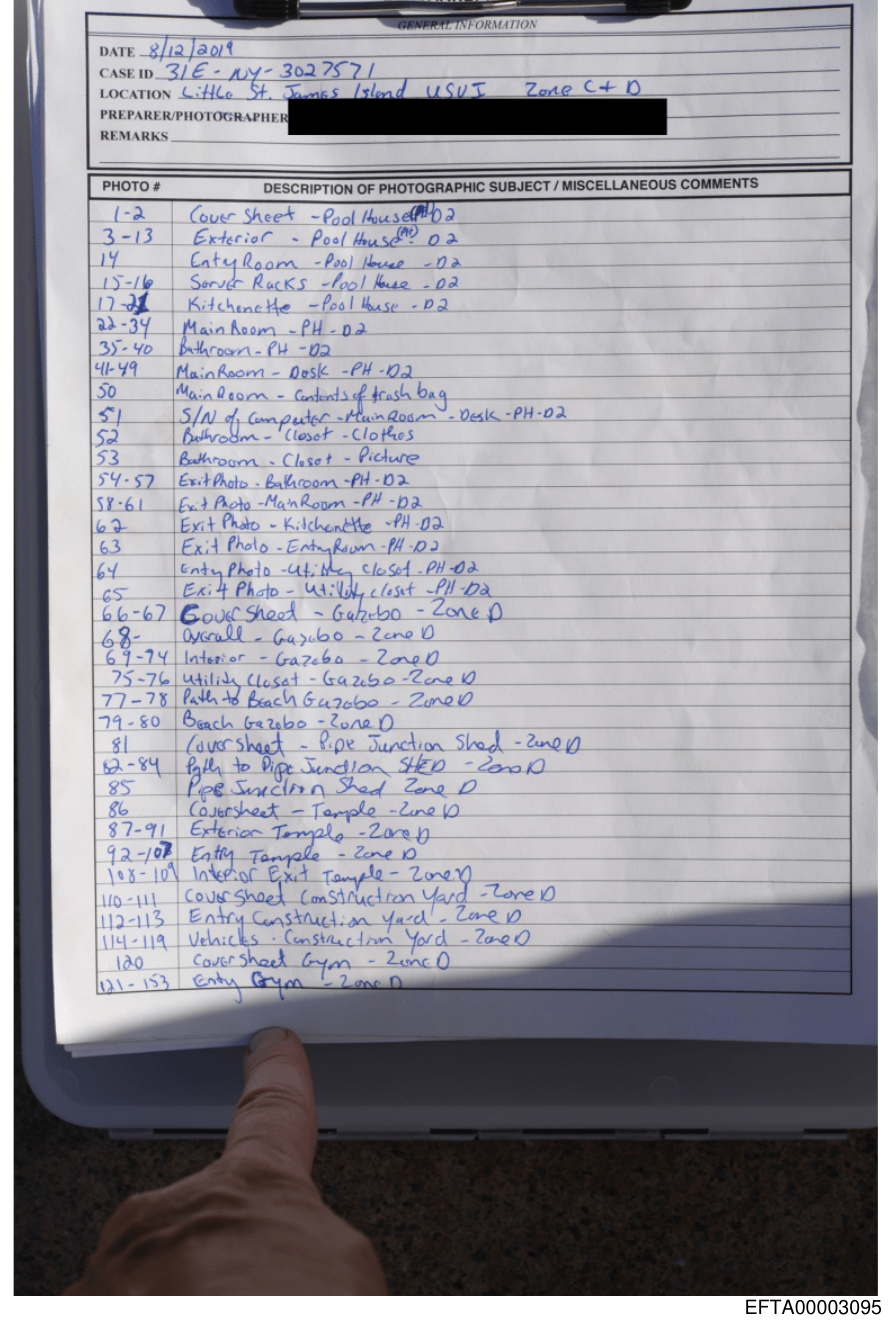 GENERAL INFORMATION
DATE 8/12/2019
CASE ID 31E-NY-3027571
LOCATION Little St. James Island USVI Zone C + D
PREPARER/PHOTOGRAPHER
REMARKS
PHOTO # DESCRIPTION OF PHOTOGRAPHIC SUBJECT / MISCELLANEOUS COMMENTS
1-2 Cover Sheet - Pool House (PH) D2
3-13 Exterior - Pool House (PH) D2
14 Entry Room - Pool House - D2
15-16 Server Racks - Pool House - D2
17-21 Kitchenette - Pool House - D2
22-34 Main Room - PH - D2
35-40 Bathroom - PH - D2
41-49 Main Room - Desk - PH - D2
50 Main Room - Contents of trash bag
51 S/N of Computer - Main Room - Desk - PH - D2
52 Bathroom - Closet - Clothes
53 Bathroom - Closet - Picture
54-57 Exit Photo - Bathroom - PH - D2
58-61 Exit Photo - Main Room - PH - D2
62 Exit Photo - Kitchenette - PH - D2
63 Exit Photo - Entry Room - PH - D2
64 Entry Photo - Utility Closet - PH - D2
65 Exit Photo - Utility closet - PH - D2
66-67 Cover Sheet - Gazebo - Zone D
68- Overall - Gazebo - Zone D
69-74 Interior - Gazebo - Zone D
75-76 Utility Closet - Gazebo - Zone D
77-78 Path to Beach Gazebo - Zone D
79-80 Beach Gazebo - Zone D
81 Cover sheet - Pipe Junction Shed - Zone D
82-84 Path to Pipe Junction SHED - Zone D
85 Pipe Junction Shed Zone D
86 Coversheet - Temple - Zone D
87-91 Exterior Temple - Zone D
92-107 Entry Temple - Zone D
108-109 Interior Exit Temple - Zone D
110-111 Cover Sheet Construction Yard - Zone D
112-113 Entry Construction Yard - Zone D
114-119 Vehicles - Construction Yard - Zone D
120 Cover Sheet Gym - Zone D
121-153 Entry Gym - Zone D
EFTA00003095